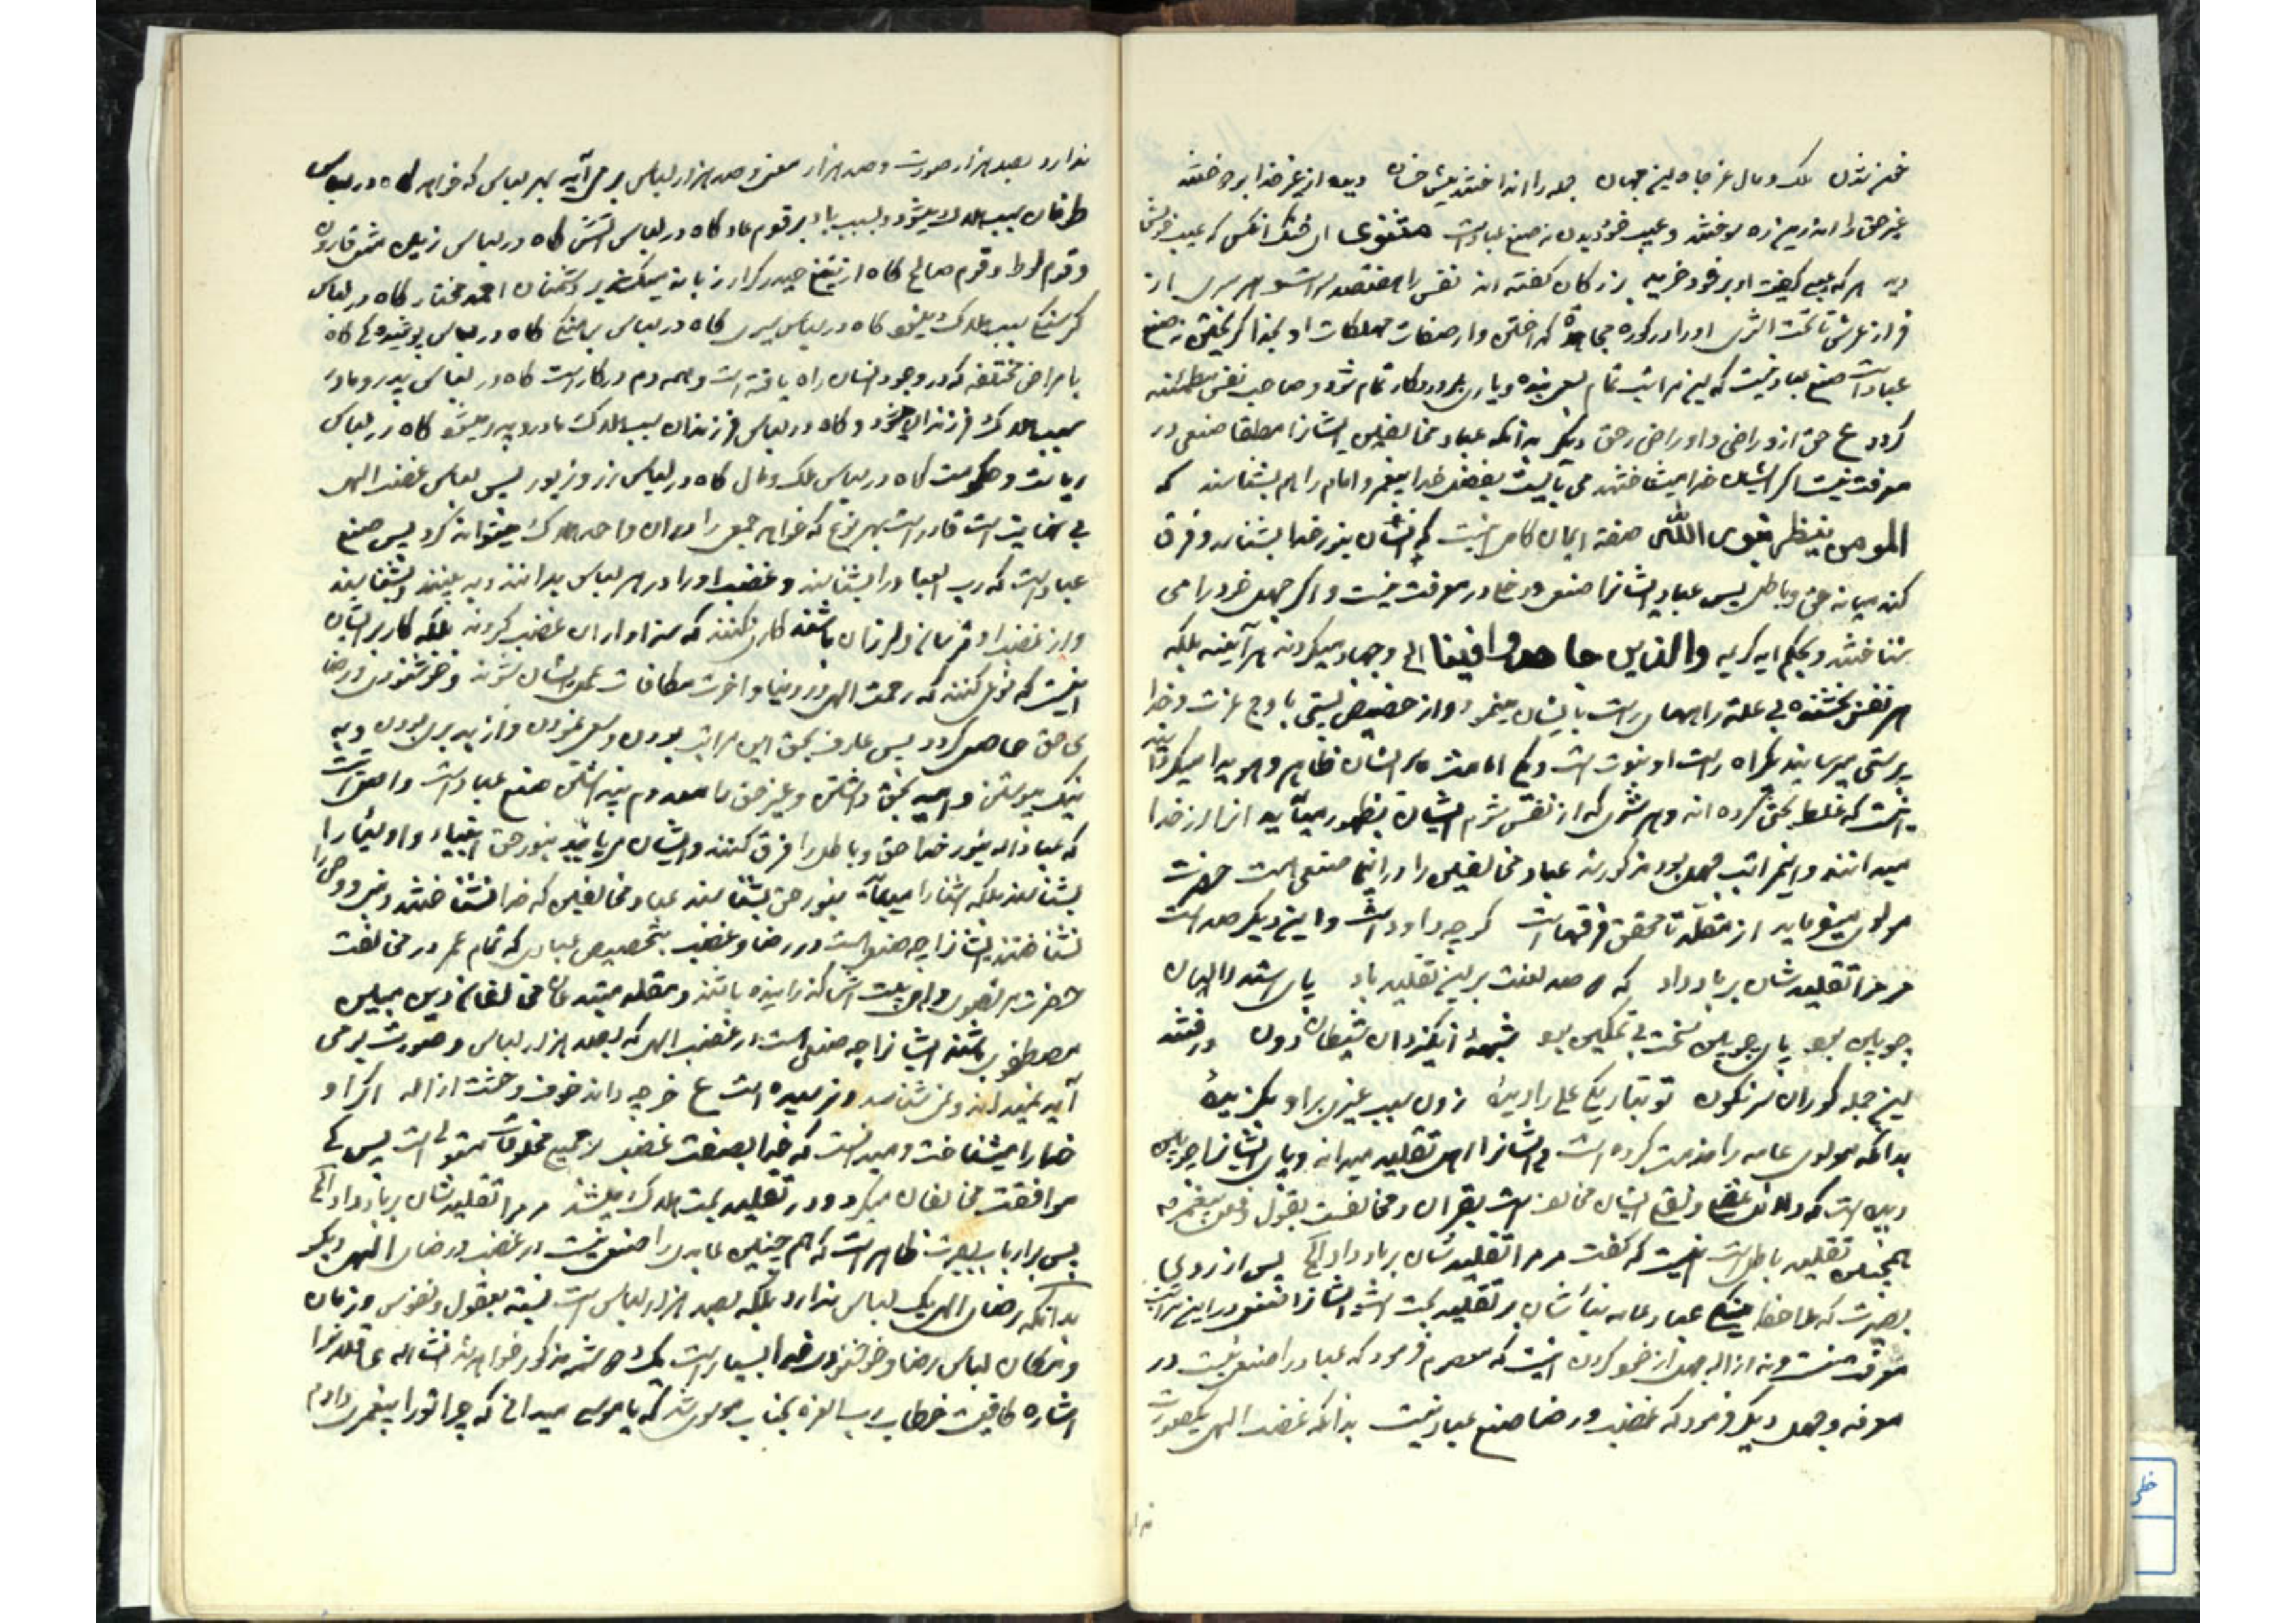 ملک و مال غز جاه این جهان جمله را انداختند پیش خسان دیده از غیر خدا بردوختند
غیر حق را اندرین ره سوختند و عیب خود دیدن نه صنع عباد است مثنوی ای خنک آنکس که عیب خویش
دید هر که عیبی گفت او بر خود خرید بزرگان گفته اند نفس را هفتصد سر است و هر سری از
فراز عرش تا تحت الثری او را در کوره مجاهده گداختن و از صفات مهلکات او بخدا گریختن نه صنع
عباد است صنع عباد نیست که این مراتب تمام بسعی بنده و یاری پروردگار تمام شود و صاحب نفس مطمئنه
گردد ع حق ازو راضی و او راضی ز حق دیگر بدانکه عباد مخالفین ایشانرا مطلقا صنعی در
معرفت نیست اگر ایشان خدا میشناختند می بایست پیغمبر و امام را هم بشناسند که
المومن ینظر بنور الله صفة ایمان کامل نیست که انسان بنور خدا بشناسد و فرق
کند میانه حق و باطل پس عباد ایشانرا صنعی در معرفت نیست و اگر جهل خود را می
شناختند و بحکم آیه کریمه والذین جاهدوا فینا الخ و جهاد میکردند هر آینه بلکه
هر نفس بخشنده بی علت راهیکه راست بایشان مینمود و از حضیض پستی باوج عزت و خدا
پرستی میرسانید بکراه راست او نبوت است و حکم امامت بر ایشان ظاهر و هویدا میگردانید
اینست که غلط بحق کرده اند و هر شری که از نفس شوم ایشان بظهور میآید آنرا از خدا
میدانند و این مراتب جهل بود مذکور شد عباد مخالفین را در اینها صنعی است حضرت
مولوی میفرماید از مقلد تا محقق فرقهاست کو چو داود است و این دیگر صداست
مر مرا تقلیدشان بر باد داد که دو صد لعنت بر این تقلید باد پای استدلالیان
چوبین بود پای چوبین سخت بی تمکین بود شبهه انگیزد آن شیطان دون در فتند
این جمله کوران سرنگون تو بتاریکی علی را دیدهٔ زان سبب غیری برو بگزیدهٔ
بدانکه مولوی عامه را مذمت کرده است و ایشانرا اهل تقلید میداند و پای ایشانرا چوبین
دیده است که دلائل عقلی و نقلی ایشان مخالف است بقرآن و مخالفست بقول و فعل پیغمبر چه
همچنین تقلید باطل است اینست که گفت مر مرا تقلیدشان بر باد داد الخ پس از روی
بصیرت که ملاحظه میکنیم عباد عامه بنایشان بر تقلید بحت است ایشانرا صنعی در این مراتب
معرفت نیست و نه ازاله جهل از خود کردن اینست که معصوم فرمود که عباد را صنعی نیست در
معرفة و جهل دیگر فرمود که غضب و رضا صنع عباد نیست بدانکه غضب الهی یکصورت
ندارد
ندارد بصد هزار صورت و صد هزار معنی و صد هزار لباس بر می آید بهر لباس که خواهد گاه در لباس
طوفان سبب هلاک میشود و بسبب باد بر قوم عاد گاه در لباس آتش گاه در لباس زمین مثل قارون
و قوم لوط و قوم صالح گاه از تیغ حیدر کرار زبانه میکشد بر دشمنان احمد مختار گاه در لباس
گرسنگی سبب هلاک میشود گاه در لباس سیری گاه در لباس برهنگی گاه در لباس پوشیدگی گاه
بامراض مختلفه که در وجود انسان راه یافته است و همه دم در کار است گاه در لباس پدر و مادر
سبب هلاک فرزندان میشود و گاه در لباس فرزندان سبب هلاک مادر و پدر میشود گاه در لباس
ریاست و حکومت گاه در لباس ملک و مال گاه در لباس زر و زیور پس لباس غضب الهی
بی نهایت است قادر است بهر نوع که خواهد جمعی را در آن واحد هلاک میتواند کرد پس صنع
عباد نیست که رب العباد را بشناسند و غضب او را در هر لباس بدانند و به بینند و بشناسند
و از غضب او ترسان و لرزان باشند کاری نکنند که سزاوار آن غضب گردند بلکه کار بر ایشان
اینست که نوعی کنند که رحمت الهی در دنیا و آخرت مکافات عمل ایشان شود و خوشنودی و رضا
ی حق حاصل گردد پس عارف بحق این مراتب بودن و سعی نمودن و از بد بری بودن و به
نیک پیوستن و امید بحق داشتن و غیر حق را معدوم پنداشتن صنع عباد است و اصل آنست
که عباد الله بنور خدا حق و باطل را فرق کنند و ایشان می باید بنور حق انبیاء و اولیاء را
بشناسند بلکه اشیا را میباید بنور حق بشناسند عباد مخالفین که خدا نشناختند و نبی و وصی را
نشناختند ایشانرا چه صنعی است در رضا و غضب بتخصیص عبادی که تمام عمر در مخالفت
حضرت مرتضوی و اهل بیت ایشان گذرانیده باشند و مقلد مبتدعان مخالفان دین مبین
مصطفوی باشند ایشانرا چه صنعی است در غضب الهی که بصد هزار لباس و صورت بر می
آید نمیدانند و نمی شناسند و نرسیده است ع خر چه داند خوف و خشیت از اله اگر او
خدا را میشناخت و میدانست که خدا بصفت غضب بر جمیع مخلوقات مستولی است پس کی
موافقت مخالفان میکرد و در تقلید بحت هلاک میشد مر مرا تقلیدشان بر باد داد الخ
پس بر ارباب بصیرت ظاهر است که هم چنین عابدی را صنعی نیست در غضب و رضای الهی دیگر
بدانکه رضای الهی یک لباس ندارد بلکه بصد هزار لباس است نسبت بعقول و نفوس و زمان
و مکان لباس رضا و خوشنودی خدا بسیار است یک دو شمه مذکور خواهد شد انشاءالله عاقلانرا
اشاره کافیست خطاب رب العزه بجناب موسی شد که یا موسی میدانی که چرا تو را پیغمبری دادم